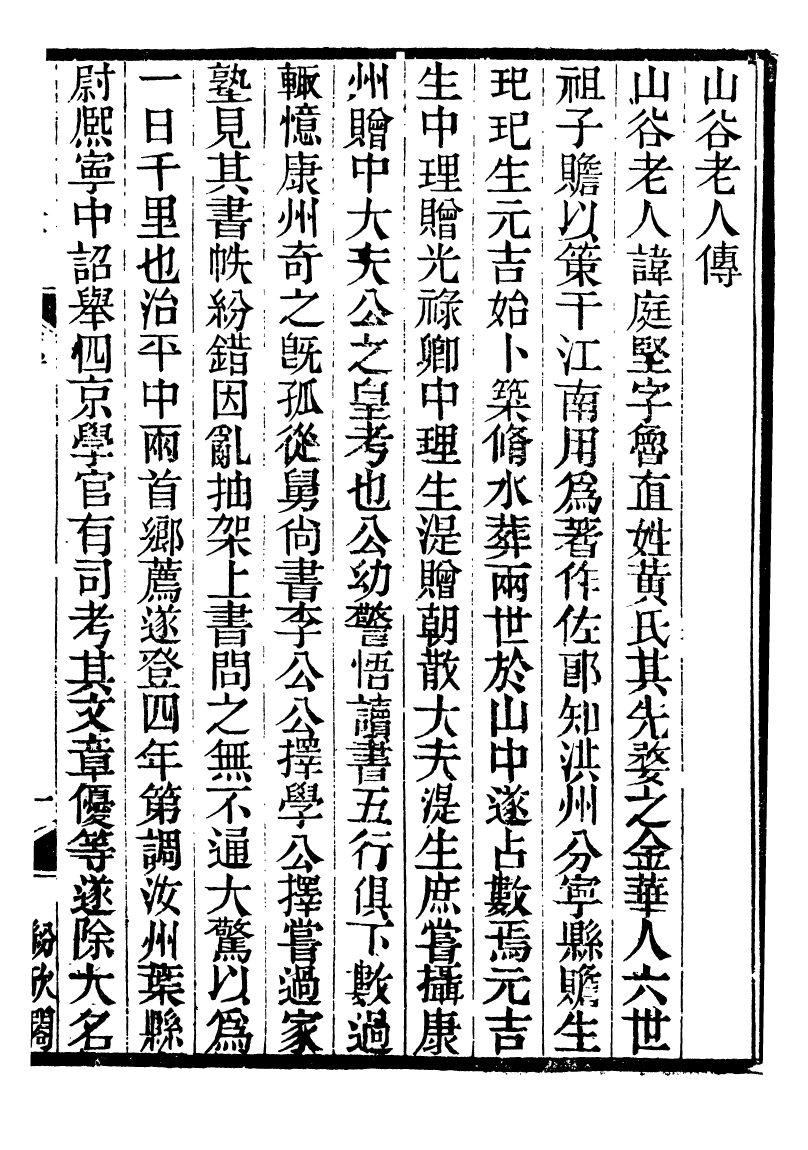 山谷老人傳
山谷老人諱庭堅字魯直姓黃氏其先婺之金華人六世
祖子贍以策干江南用爲著作佐郎知洪州分寧縣贍生
玘玘生元吉始卜築脩水葬兩世於山中遂占數焉元吉
生中理贈光祿卿中理生湜贈朝散大夫湜生庶嘗攝康
州贈中大夫公之皇考也公幼警悟讀書五行俱下數過
輒憶康州奇之旣孤從舅尙書李公公擇學公擇嘗過家
塾見其書帙紛錯因亂抽架上書問之無不通大驚以爲
一日千里也治平中兩首鄉薦遂登四年第調汝州葉縣
尉熙寧中詔舉四京學官有司考其文章優等遂除大名
一
紛欣閣